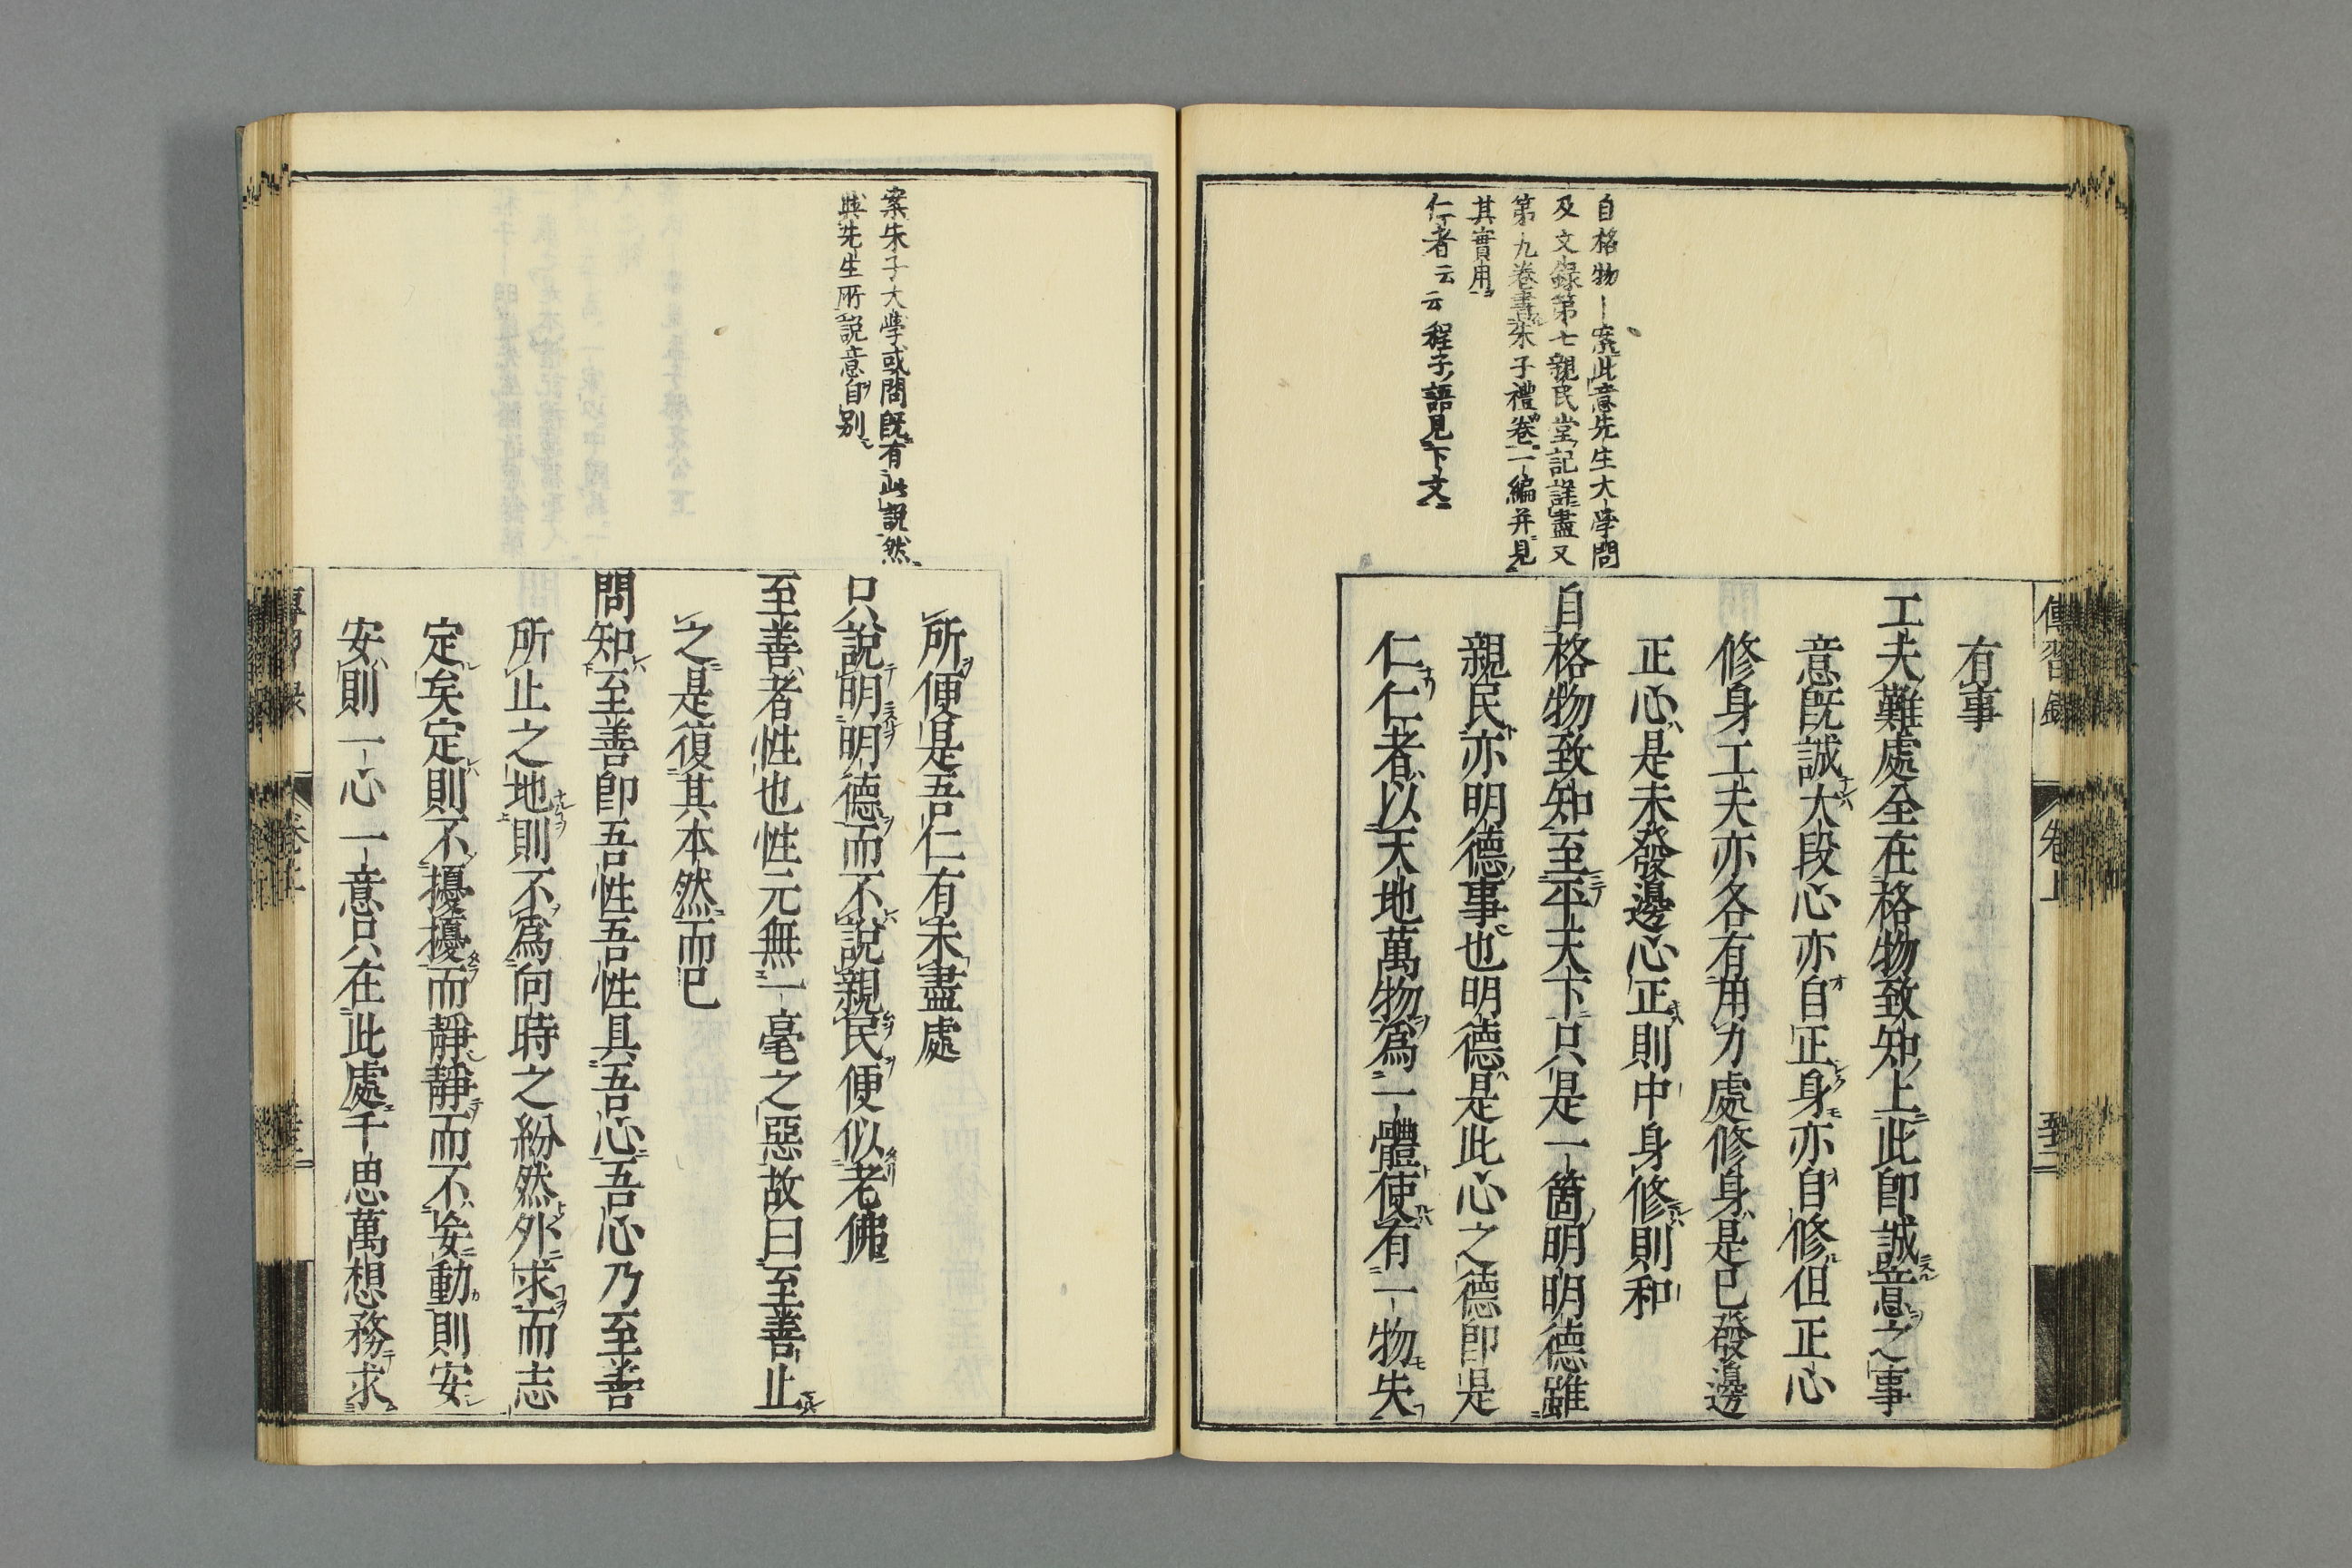 傳習錄
卷上
自格物｜案此意先生大學問
及文録第七親民堂記詳盡又
第九卷書朱子禮卷一編并見
其實用
仁者云云程子語見下文
有事
工夫難處全在格物致知上此即誠意之事
意既誠大段心亦自正身亦自修但正心
修身工夫亦各有用力處修身是已發邊
正心是未發邊心正則中身修則和
自格物致知至平天下只是一箇明明德雖
親民亦明德事也明德是此心之德即是
仁仁者以天地萬物爲一體使有一物失
案朱子大學或問既有此說然
與先生所說意自別
所便是吾仁有未盡處
只說明明德而不說親民便似老佛
至善者性也性元無一毫之惡故曰至善止
之是復其本然而已
問知至善即吾性吾性具吾心吾心乃至善
所止之地則不爲向時之紛然外求而志
定矣定則不擾擾而靜靜而不妄動則安
安則一心一意只在此處千思萬想務求